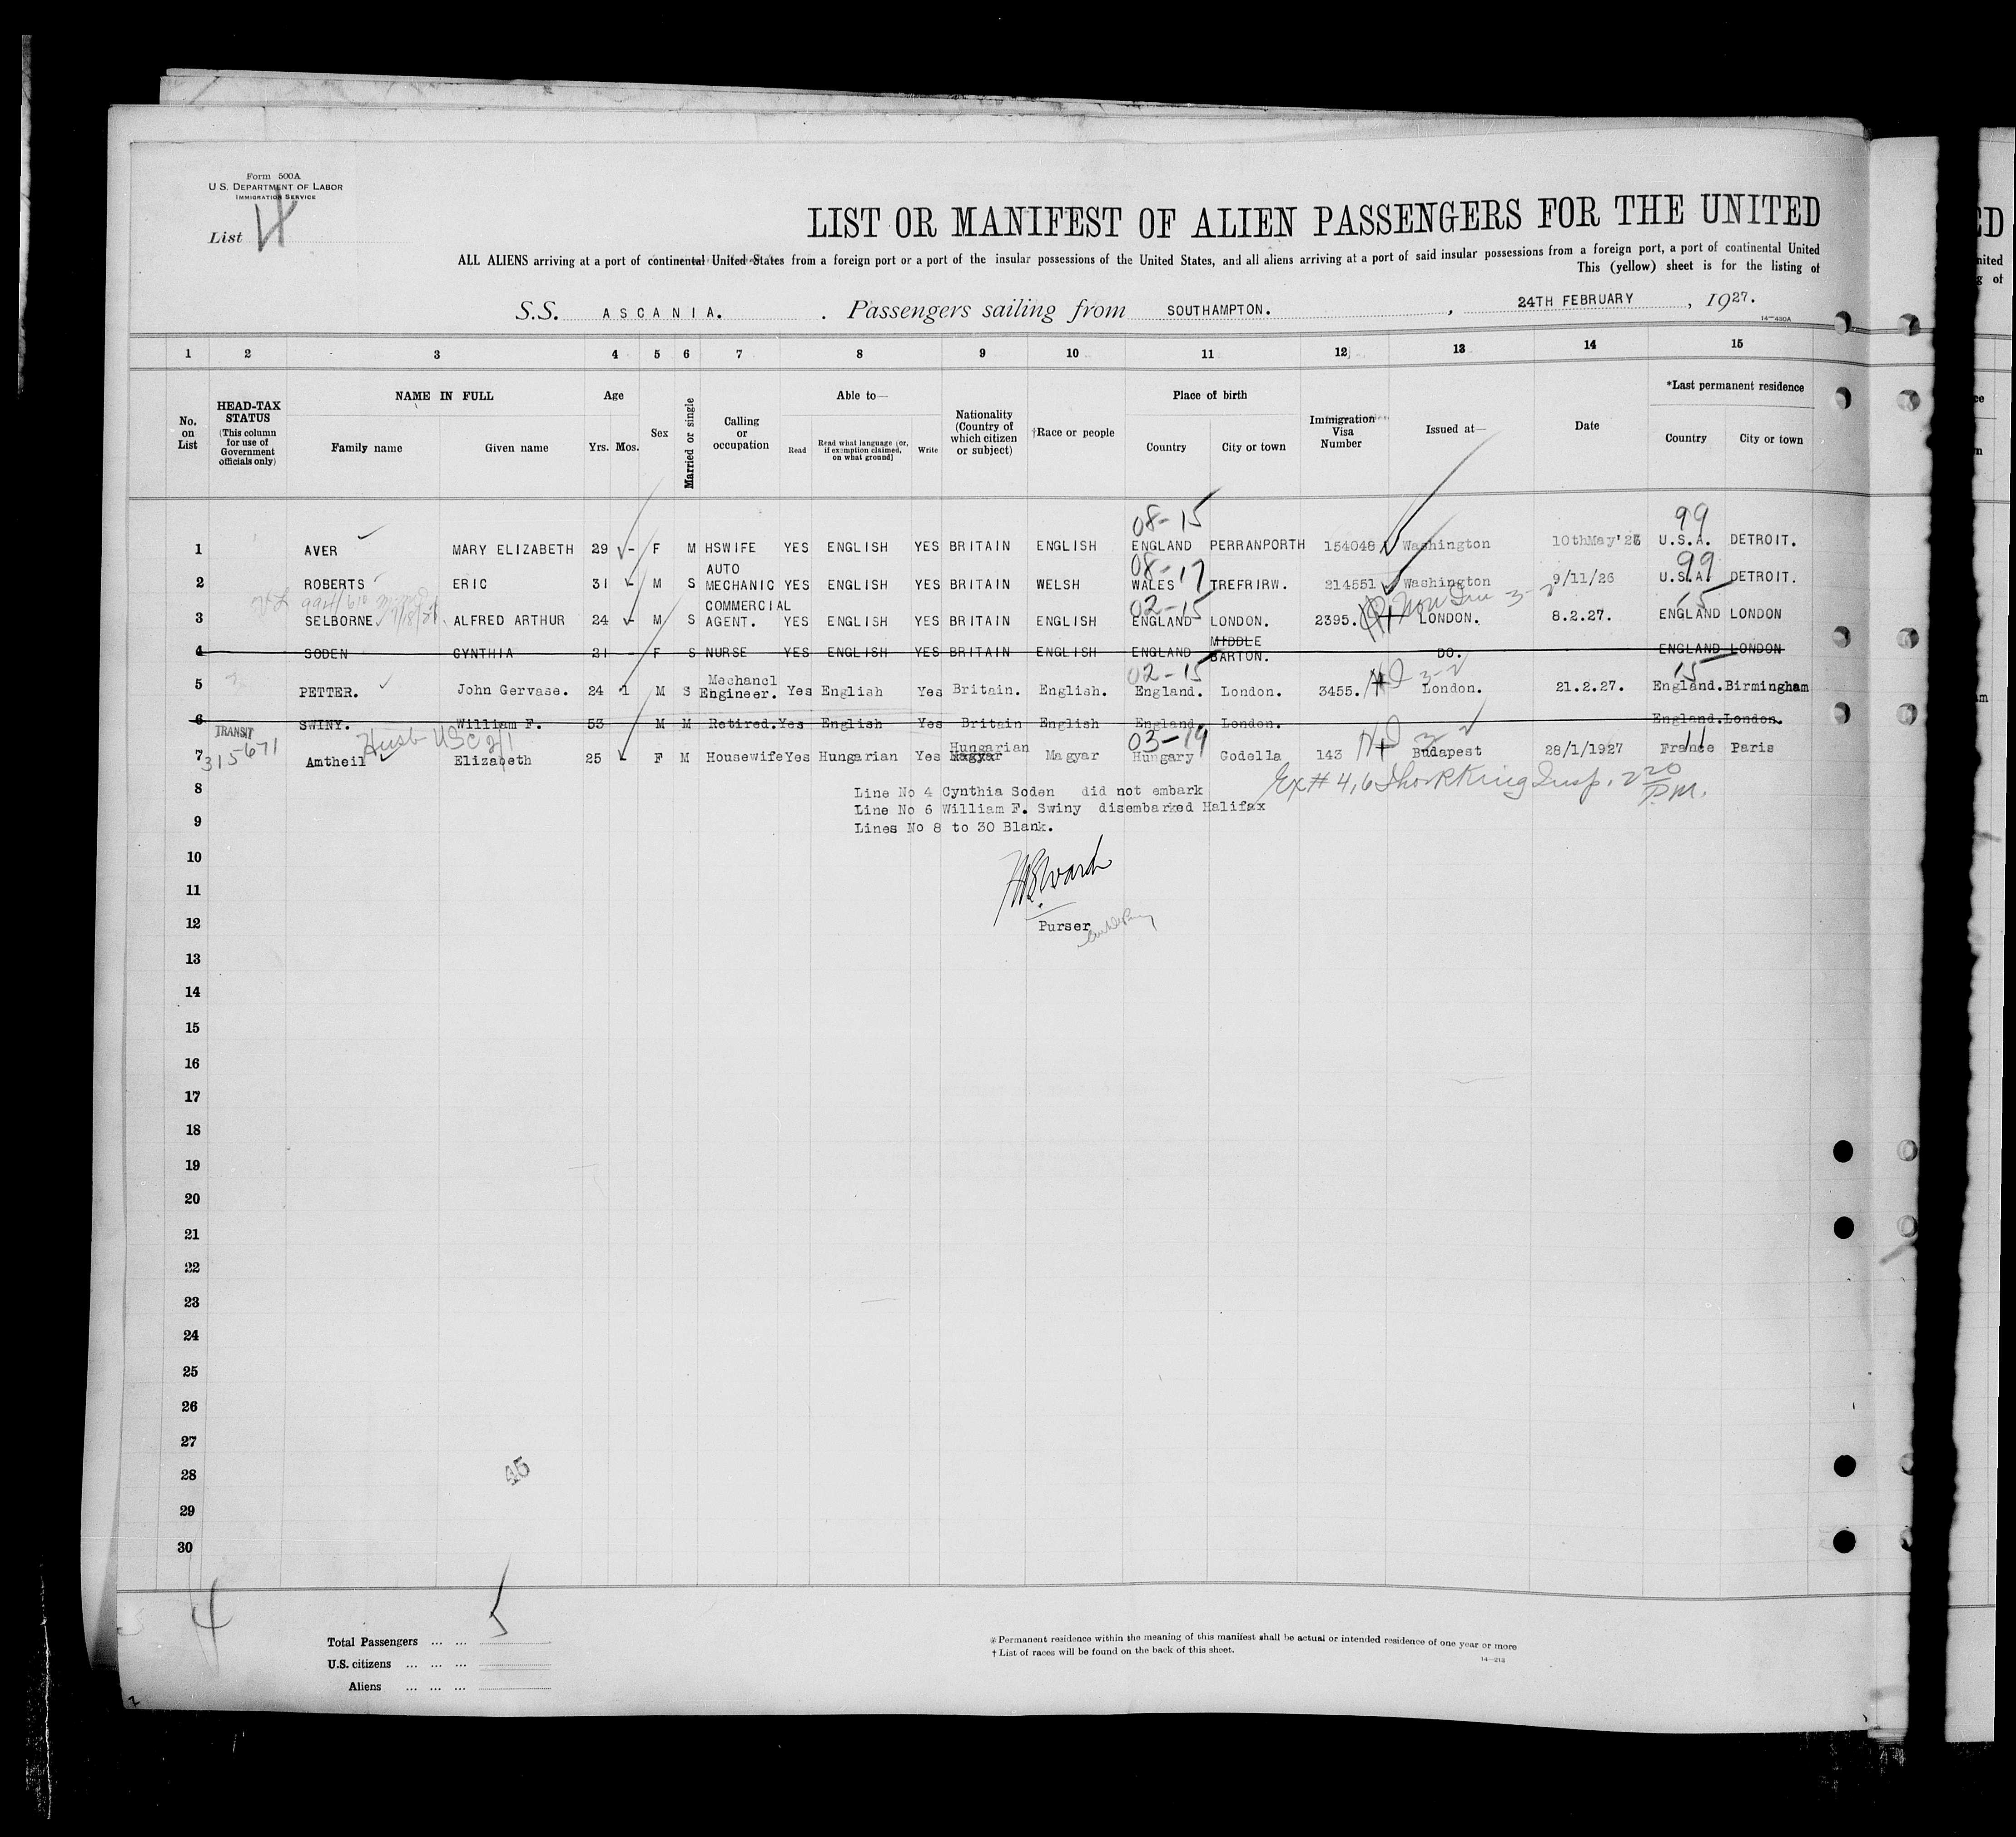 Form 500A
U.S. DEPARTMENT OF LABOR
IMMIGRATION SERVICE
List 4
LIST OR MANIFEST OF ALIEN PASSENGERS FOR THE UNITED
ALL ALIENS arriving at a port of continental United States from a foreign port or a port of the insular possessions of the United States, and all aliens arriving at a port of said insular possessions from a foreign port, a port of continental United
This (yellow) sheet is for the listing of
S.S. ASCANIA. Passengers sailing from SOUTHAMPTON. , 24TH FEBRUARY , 1927.
14—430A
1 2 3 4 5 6 7 8 9 10 11 12 13 14 15
No. on List
HEAD-TAX STATUS (This column for use of Government officials only)
NAME IN FULL
Family name Given name
Age
Yrs. Mos.
Sex
Married or single
Calling or occupation
Able to—
Read Read what language [or, if exemption claimed, on what ground] Write
Nationality (Country of which citizen or subject)
†Race or people
Place of birth
Country City or town
Immigration Visa Number
Issued at—
Date
*Last permanent residence
Country City or town
08-15 99
1 AVER MARY ELIZABETH 29 - F M HSWIFE YES ENGLISH YES BRITAIN ENGLISH ENGLAND PERRANPORTH 154048 Washington 10thMay'26 U.S.A. DETROIT.
08-17 99
2 ROBERTS ERIC 31 - M S AUTO MECHANIC YES ENGLISH YES BRITAIN WELSH WALES TREFRIRW. 214551 Washington 9/11/26 U.S.A. DETROIT.
02-15 15
3 SELBORNE ALFRED ARTHUR 24 - M S COMMERCIAL AGENT. YES ENGLISH YES BRITAIN ENGLISH ENGLAND LONDON. 2395. LONDON. 8.2.27. ENGLAND LONDON
4 SODEN CYNTHIA 21 - F S NURSE YES ENGLISH YES BRITAIN ENGLISH ENGLAND MIDDLE BARTON. DO. ENGLAND LONDON
02-15 15
5 PETTER. John Gervase. 24 1 M S Mechancl Engineer. Yes English Yes Britain. English. England. London. 3455. London. 21.2.27. England. Birmingham
6 SWINY. William F. 53 M M Retired. Yes English Yes Britain English England. London. England. London.
TRANSIT
315671
Husb USC
03-19 11
7 Amtheil Elizabeth 25 - F M Housewife Yes Hungarian Yes Hungarian Magyar Magyar Hungary Godella 143 Budapest 28/1/1927 France Paris
8 Line No 4 Cynthia Soden did not embark
Line No 6 William F. Swiny disembarked Halifax
9 Lines No 8 to 30 Blank.
10
11
12
Purser
13
14
15
16
17
18
19
20
21
22
23
24
25
26
27
28
29
30
45
4
5
Total Passengers ... ...
U.S. citizens ... ... ...
Aliens ... ... ...
*Permanent residence within the meaning of this manifest shall be actual or intended residence of one year or more
† List of races will be found on the back of this sheet.
14—213